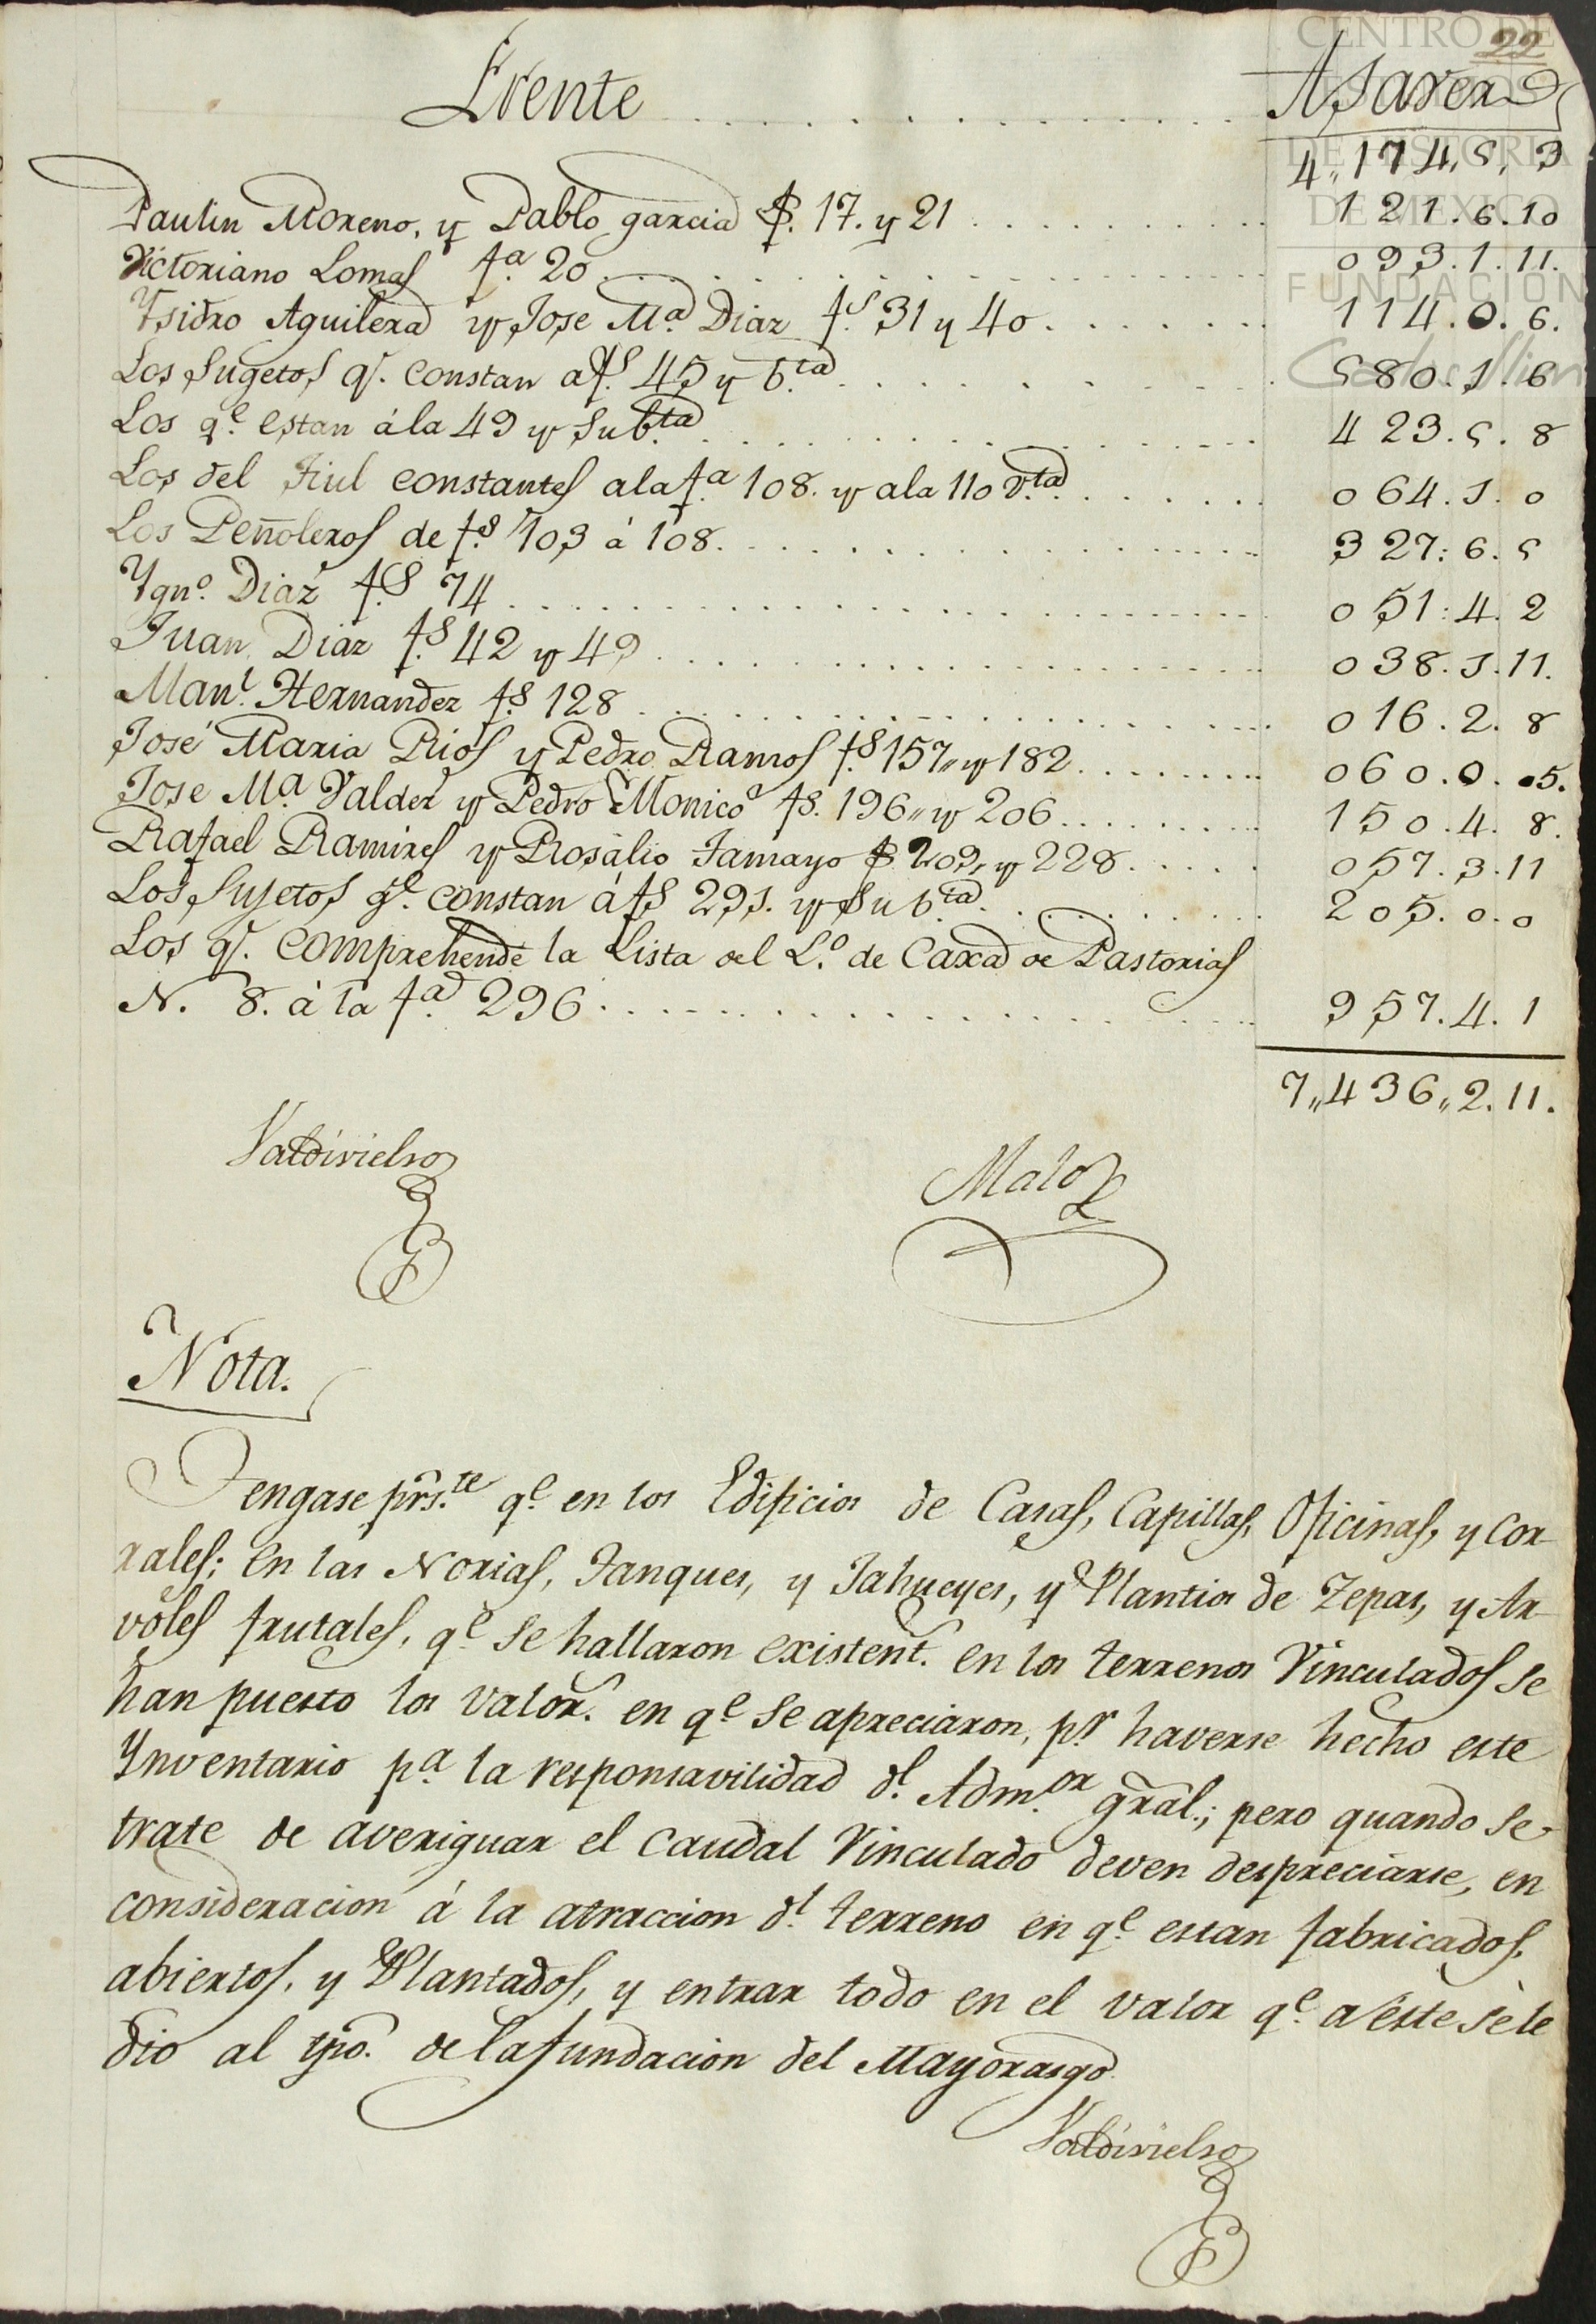 CENTRO DE
22
Frente A Saver
DE HISTORIA
4,,174,5,3
DE MEXICO
Paulin Moreno, y Pablo garcia f.s 17. y 21 121.6.10
Victoriano Lomas f.a 20 093.1.11.
FUNDACION
Ysidro Aguilera y Jose M.a Diaz f.s 31 y 40 114.0.6.
Los Sugetos q.e constan a f.s 45 y b.ta 580.1.6
Los q.e estan á la 49 y Su b.ta 423.5.8
Los del constantes a la f.a 108. y a la 110 v.ta 064.1.0
Los Peñoleros de f.s 103 á 108. 327:6.5
Ygn.o Diaz f.s 74 051:4.2
Juan Diaz f.s 42 y 49 038.1.11.
Man.l Hernandez f.s 128 016.2.8
José Maria Rios y Pedro Ramos f.s 157,, y 182 060.0.05.
Jose M.a Valdez y Pedro Monico f.s 196,, y 206 150.4.8.
Rafael Ramires y Rosalio Tamayo f.s 209, y 228 057.3.11
Los Sujetos q.e constan á f.s 291. y Su b.ta 205.0.0
Los q.e comprehende la Lista del L.o de Caxa de Pastorias
N. 8. á la f.a 296 957.4.1
7,,436,,2.11.
Valdivielso
Malo
Nota.
Tengase prs.te q.e en los Edificios de Casas, Capillas, Oficinas, y Cor-
rales; en las Norias, Tanques, y Jahueyes, y Plantios de Zepas, y Ar-
voles frutales, q.e se hallaron existent.s en los terrenos Vinculados se
han puesto los valor.s en q.e se apreciaron, p.r haverse hecho este
Ynventario p.a la responsavilidad d.l Adm.or gral.; pero quando se
trate de averiguar el caudal Vinculado deven despreciarse, en
consideracion á la atraccion d.l terreno en q.e estan fabricados,
abiertos, y Plantados, y entrar todo en el valor q.e a éste se le
dio al tpo. de la fundacion del Mayorasgo.
Valdivielso